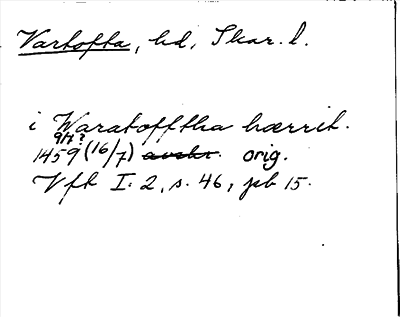 Vartofta, hd, Skar. l.
i Waratofftha hærrit.
9/7?
1459 (16/7) avskr. orig.
Vft I. 2, s. 46, pb 15.